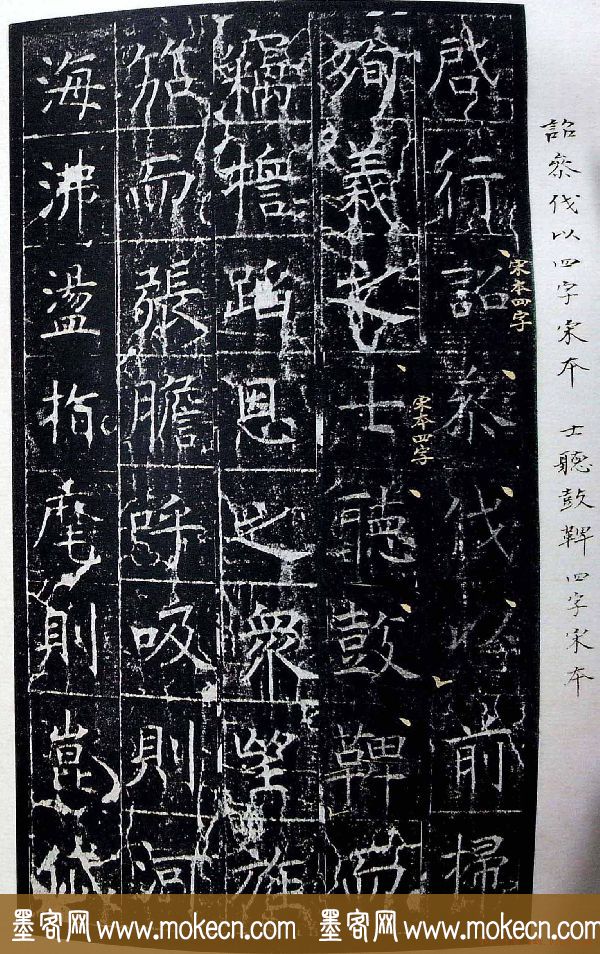 詔叅伐以四字宋本 士聽鼓鞞四字宋本
啓行詔叅伐以前掃
宋本四字
殉義之士聽鼓鞞而
宋本四字
檐蹈恩之衆望旌
笳而張膽呼吸則河
海沸盪指麾則嵩岱
墨客网 www.mokecn.com 墨客网 www.mokecn.com